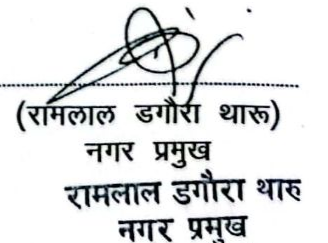 (रामलाल डगौरा थारू)
नगर प्रमुख
रामलाल डगौरा थारु
नगर प्रमुख